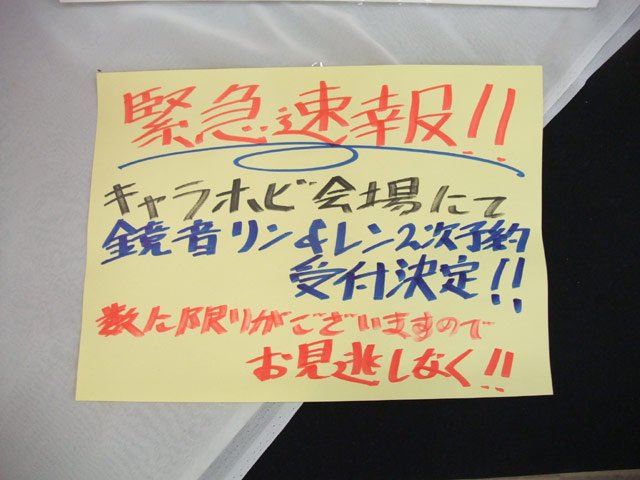 緊急速報!!
キャラホビ会場にて
鏡音リン&レン2次予約
受付決定!!
数に限りがございますので
お見逃しなく!!